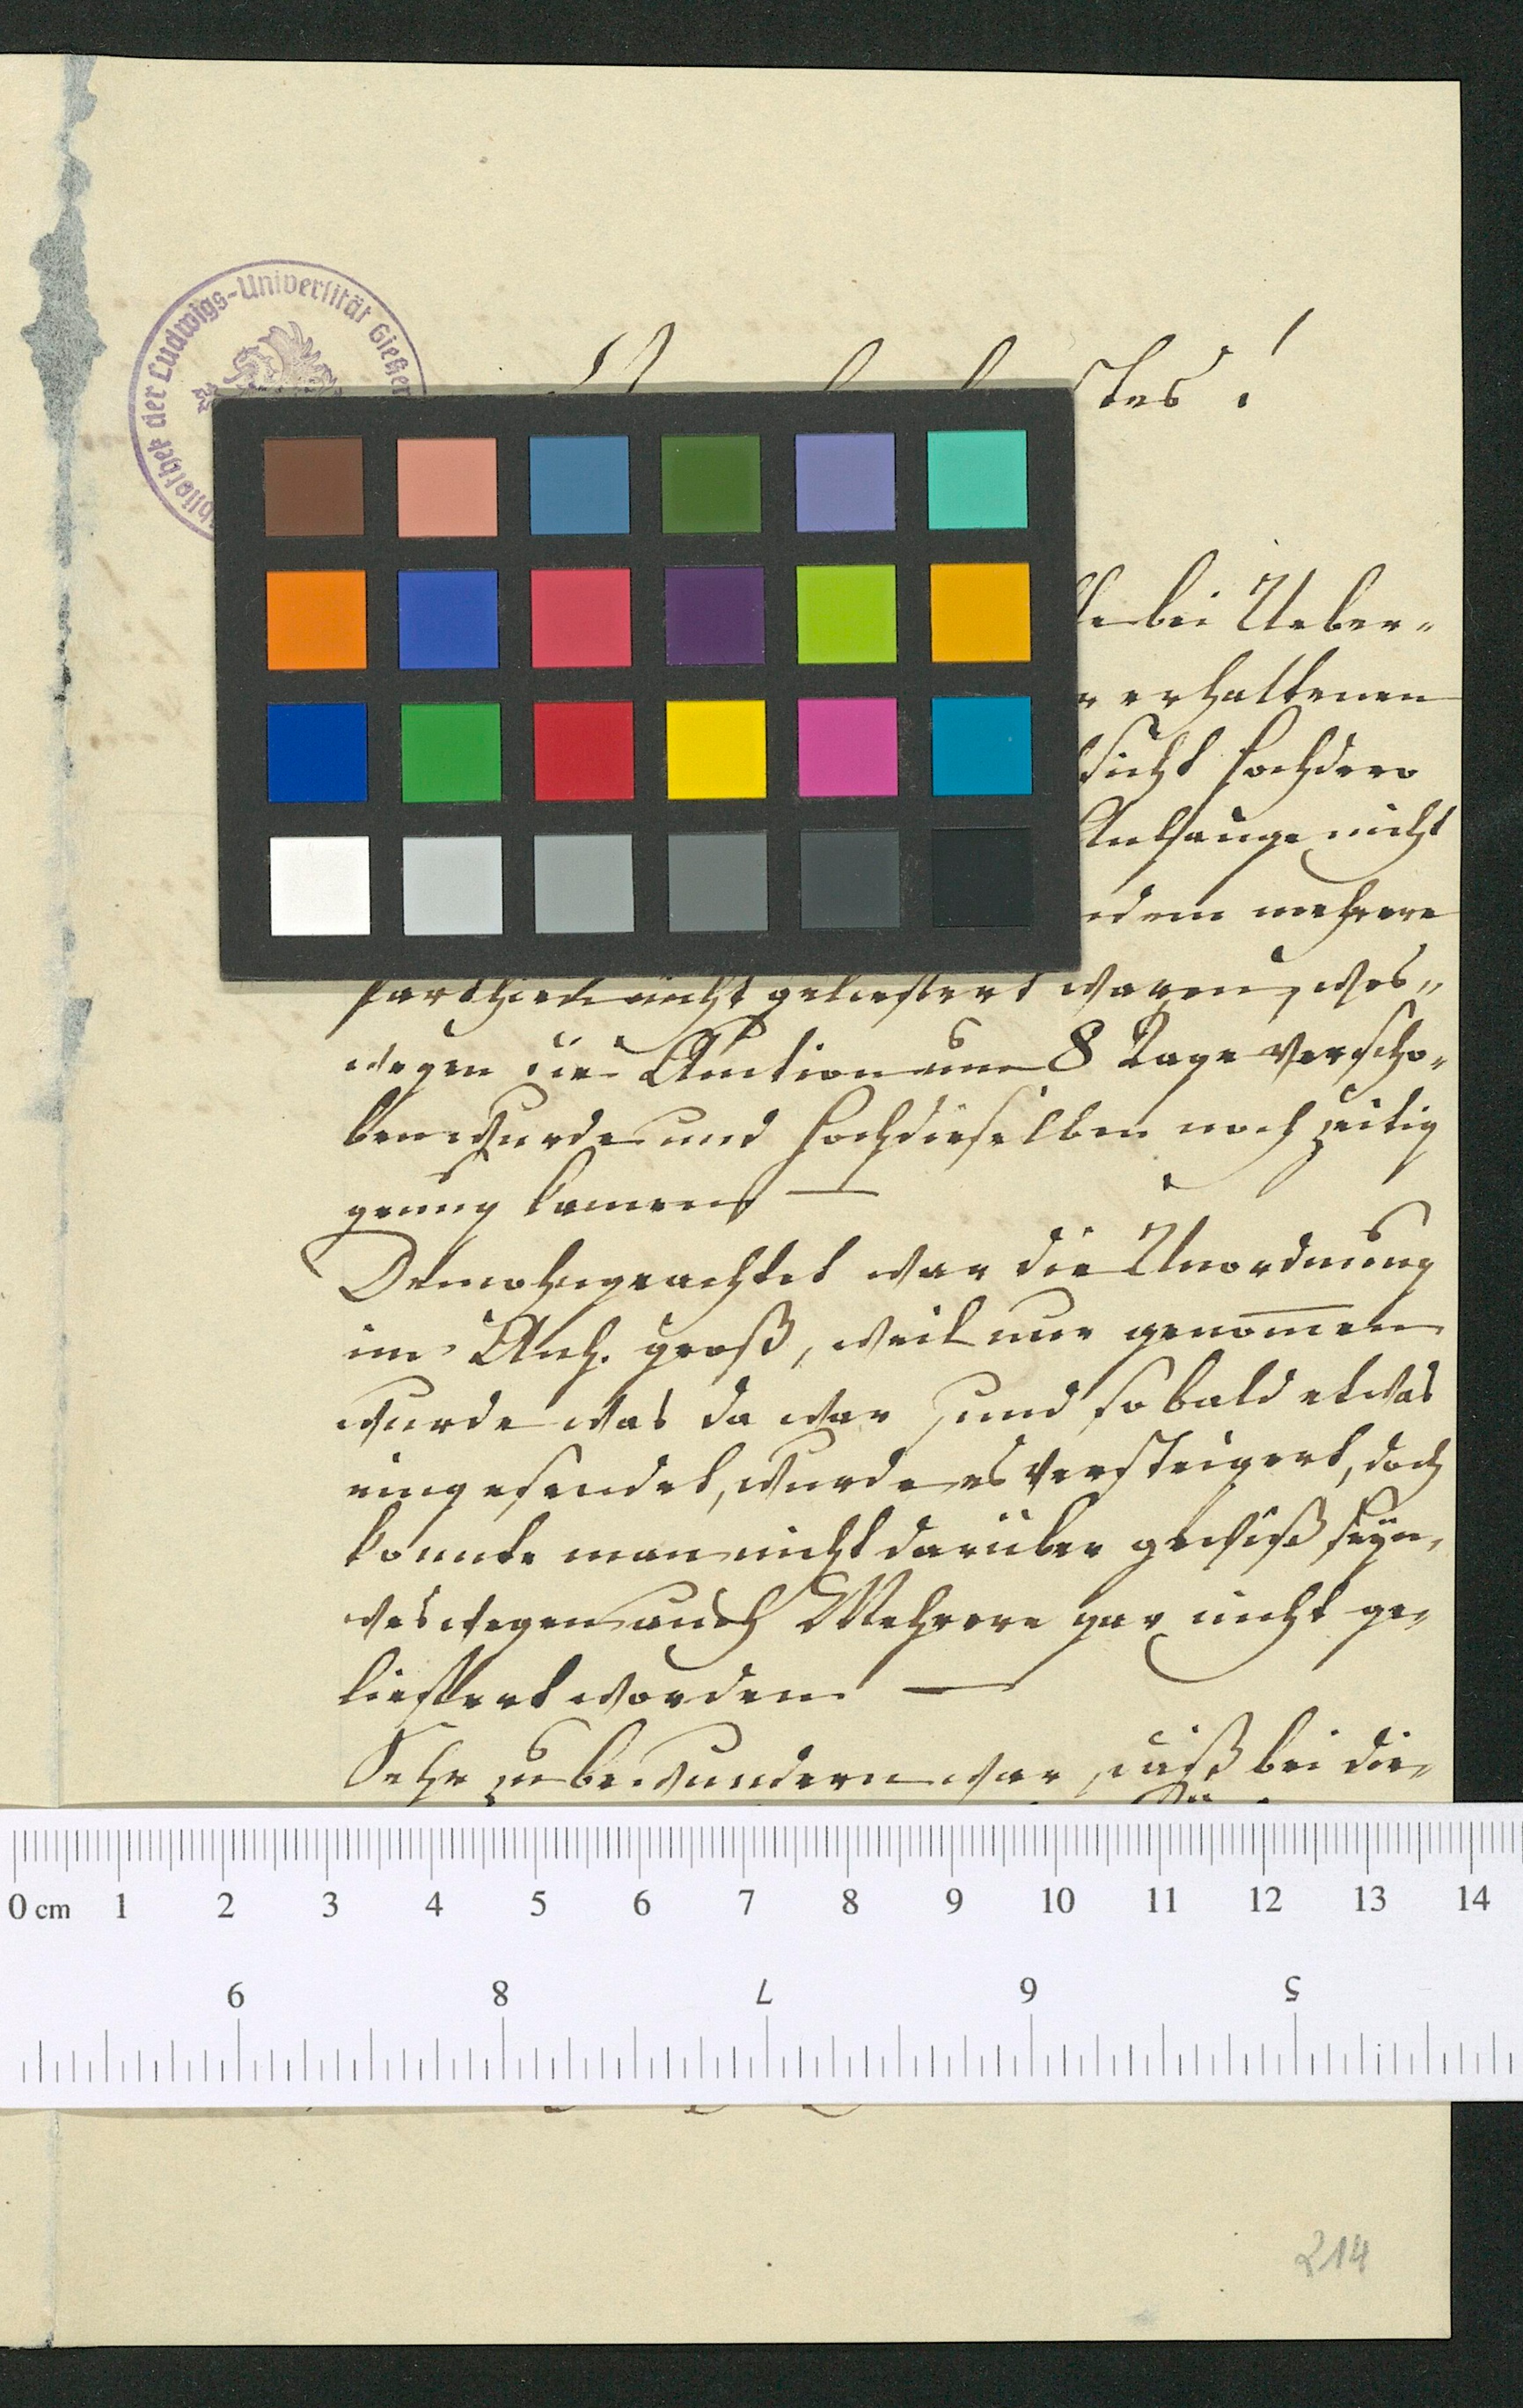 Bibliothek der Ludwigs-Universität Gießen
bei Ueber-
erhaltenen
Hochdero
Anfange nicht
mehrere
Parthien nicht geliefert waren, wes-
wegen die Auction um 8 Tage verscho-
ben wurde und Hochdieselben noch zeitig
genug kamen —
Demohngeachtet war die Unordnung
im Anf. groß, weil nur genom̅en
wurde was da war und sobald etwas
eingesendet, wurde es versteigert, doch
konnte man nicht darüber gewiß seÿn,
weswegen auch Mehrere gar nicht ge-
liefert worden. —
Sehr zu bewundern war, daß bei die-
0 cm 1 2 3 4 5 6 7 8 9 10 11 12 13 14
9 8 7 6 5
214